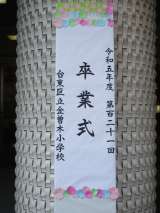 令和五年度 第百二十一回
卒業式
台東区立金曽木小学校